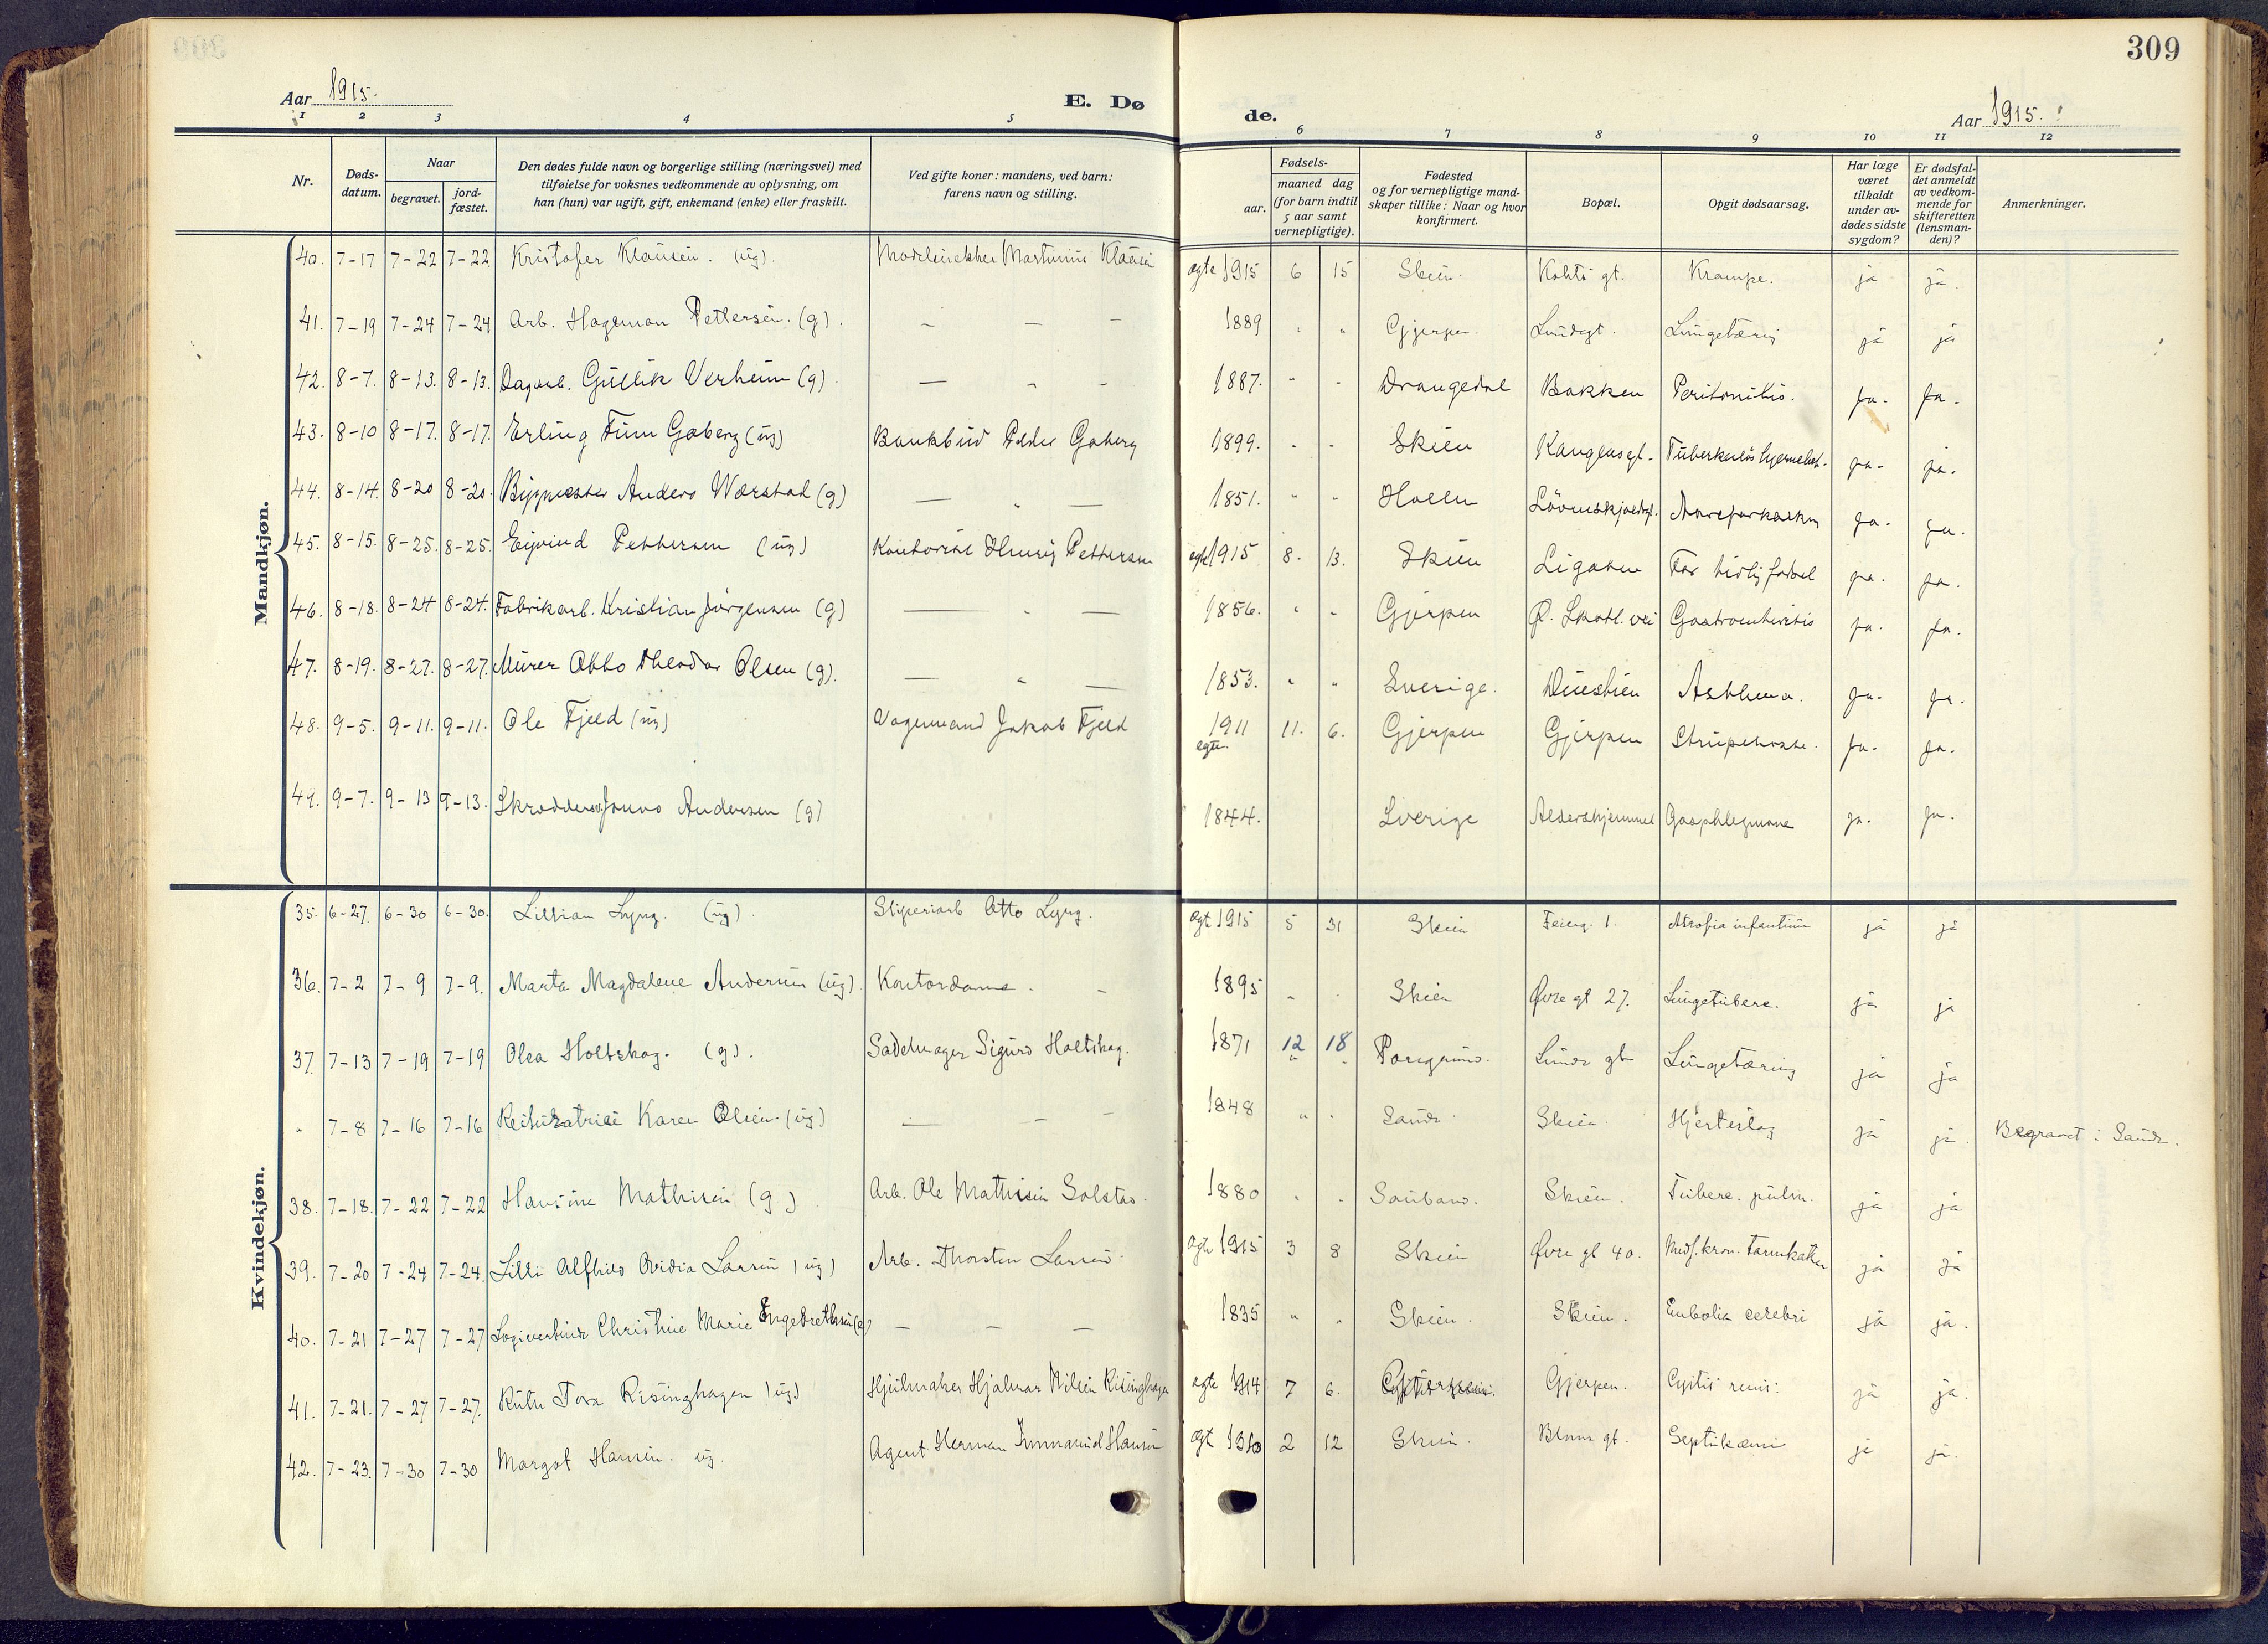 309
Aar 1915.
E. Døde.
Aar 1915.
1 2 3 4 5 6 7 8 9 10 11 12
Nr.
Døds-
datum.
Naar
begravet.
jord-
fæstet.
Den dødes fulde navn og borgerlige stilling (næringsvei) med
tilføielse for voksnes vedkommende av oplysning, om
han (hun) var ugift, gift, enkemand (enke) eller fraskilt.
Ved gifte koner: mandens, ved barn:
farens navn og stilling.
Fødsels-
aar.
maaned dag
(for barn indtil
5 aar samt
vernepligtige).
Fødested
og for vernepligtige mand-
skaper tillike: Naar og hvor
konfirmert.
Bopæl.
Opgit dødsaarsag.
Har læge
været
tilkaldt
under av-
dødes sidste
sygdom?
Er dødsfal-
det anmeldt
av vedkom-
mende for
skifteretten
(lensman-
den)?
Anmerkninger.
Mandkjøn.
40. 7-17 7-22 7-22 Kristofer Klausen. (ug). Martinius Klausen ægte 1915 6 15 Skien. gt. Krampe. ja ja.
41. 7-19 7-24 7-24 Arb. Hageman Pettersen. (g). — — — 1889 " " Gjerpen. Lundegt. Lungetæring ja ja
42. 8-7. 8-13. 8-13. Dagarb. Gullik Verheim (g). — " - 1887. " - Drangedal Bakken Peritonitis. ja. ja.
43. 8-10 8-17. 8-17. Erling Finn Gaberg (ug) Bankbud Peder Gaberg 1899. - - Skien Tuberkuløs ja- ja.
44. 8-14. 8-20 8-20. Anders Værstad (g) — " — 1851. " " Hollen Løvenskjoldgt. Aareforkalkn ja. ja.
45. 8-15. 8-25. 8-25. Eyvind Pettersen (ug) Kontorist Henry Pettersen egte 1915 8. 13. Skien Ligaten For tidlig fødsel ja. ja.
46. 8-18. 8-24 8-24. Fabrikarb. Kristian Jörgensen (g) — " — 1856. " - Gjerpen Ø. vei Gastroenteritis ja. ja.
47. 8-19. 8-27. 8-27. Murer Otto Theodor Olsen (g). — " — 1853. " " Sverige. Duestien Asthma. ja. ja.
48. 9-5. 9-11. 9-11. Ole Fjeld (ug) Vognmand Jakob Fjeld 1911 11. 6. Gjerpen Gjerpen Strupehoste. ja. ja.
egte.
49. 9-7. 9-13 9-13. Skrædders. Jonas Andersen (g) 1844. Sverige Aldershjemmet Gasphlegmone ja. ja.
Kvindekjøn.
35. 6-27. 6-30 6-30. Lillian Lyng. (ug). Sliperiarb Otto Lyng. ægte 1915 5 31 Skien Feierg. 1. Atrofia infantium ja ja
36. 7-2 7-9 7-9. Marta Magdalene Andersen (ug). Kontordame. - 1895 " " Skien Øvre gt 27. Lungetuberc. ja ja
37. 7-13 7-19 7-19 Olea Holtskog. (g). Sadelmager Sigurd Holtskog. 1871 12 18 Porsgrund. Lunde gt Lungetæring ja ja
" 7-8 7-16 7-16 Karen Olsen. (ug) — — - 1848 " " Sande Skien. Hjerteslag ja ja. Begravet i Sande.
38. 7-18. 7-22 7-22 Hansine Mathisen (g) Arb. Ole Mathisen Solstad. 1880 " " Skien. Tuberc. pulm. ja ja
39. 7-20 7-24 7-24. Lilli Alfhild Ovidia Larsen (ug) Arb. Thorsten Larsen. ægte 1915 3 8 Skien Øvre gt 40. Medf. kron. tarmkatharr ja ja
40. 7-21 7-27 7-27 Christine Marie Engebrethsen (e) — — — 1835 " " Skien. Skien. Embolia cerebri ja ja.
41. 7-21. 7-27 7-27. Ruth Tora Risinghagen (ug) Hjulmaker Hjalmar Nilsen Risinghagen ægte 1914 7 6. Gjerpen. Cystis renis. ja ja.
42. 7-23. 7-30 7-30 Margot Hansen. ug. Agent Herman Immanuel Hansen ægt 1910 2 12 Skien. Blomsgt. Septikæmi ja ja.